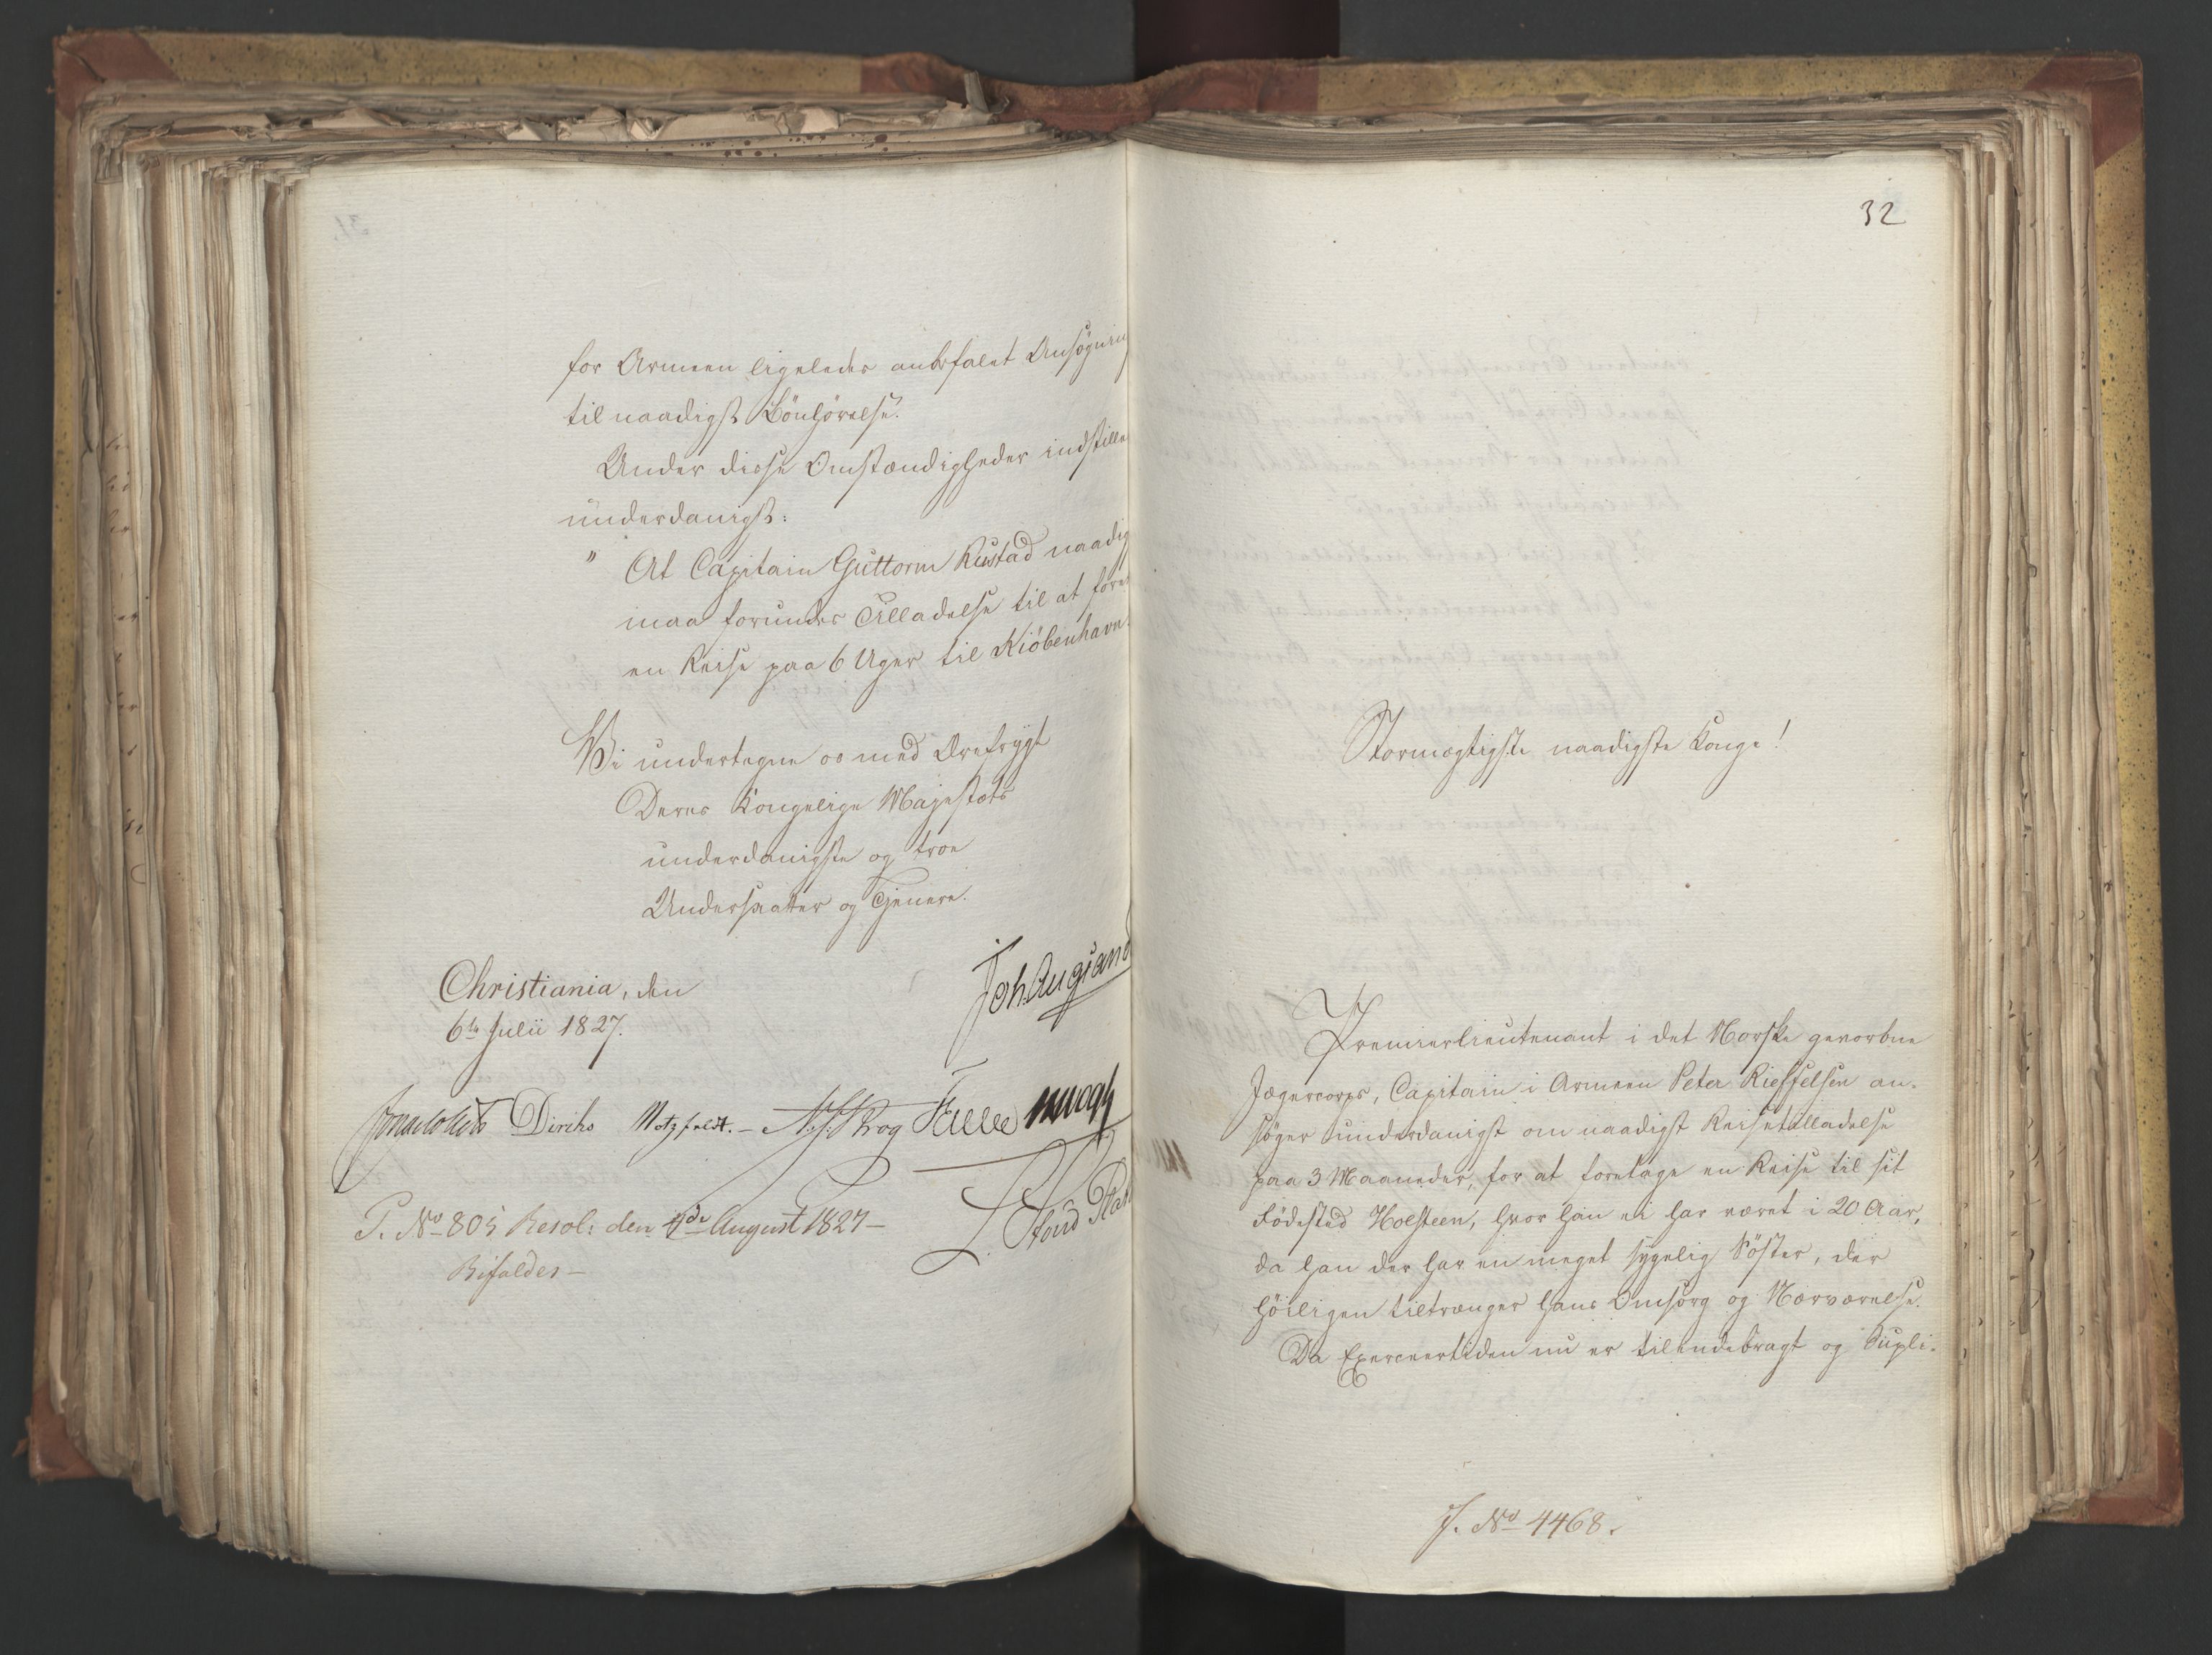 for Armeen ligeledes anbefalet Ansøgning
til naadigst Bönhörelse.
Under disse Omstændigheder indstilles
underdanigst:
" At Capitain Guttorm Rustad naadigst
maa forundes Tilladelse til at fore
en Reise paa 6 Uger til Kiöbenhavn.
Vi undertegne os med Ærefrygt
Deres Kongelige Majestæts
underdanigste og troe
Undersaatter og Tjenere.
Christiania, den
6te Julii 1827.
Joh. Aug. Sand
Jonas Collett Diriks Motzfeldt. – N. J. Krog Falle
P. No 805 Resol: den 4de August 1827 –
Bifaldes –
32
Stormægtigste naadigste Konge!
Premierlieutenant i det Norske gevorbne
Jægercorps, Capitain i Armeen Peter Rieffelsen an-
søger underdanigst om naadigst Reisetilladelse
paa 3 Maaneder, for at foretage en Reise til sit
Födested Holsteen, hvor han ei har været i 20 Aar,
da han der har en meget sygelig Söster, der
höiligen tiltrænger hans Omsorg og Nærværelse.
Da Exerceertiden nu er tilendebragt og Supli-
J. No 4468.